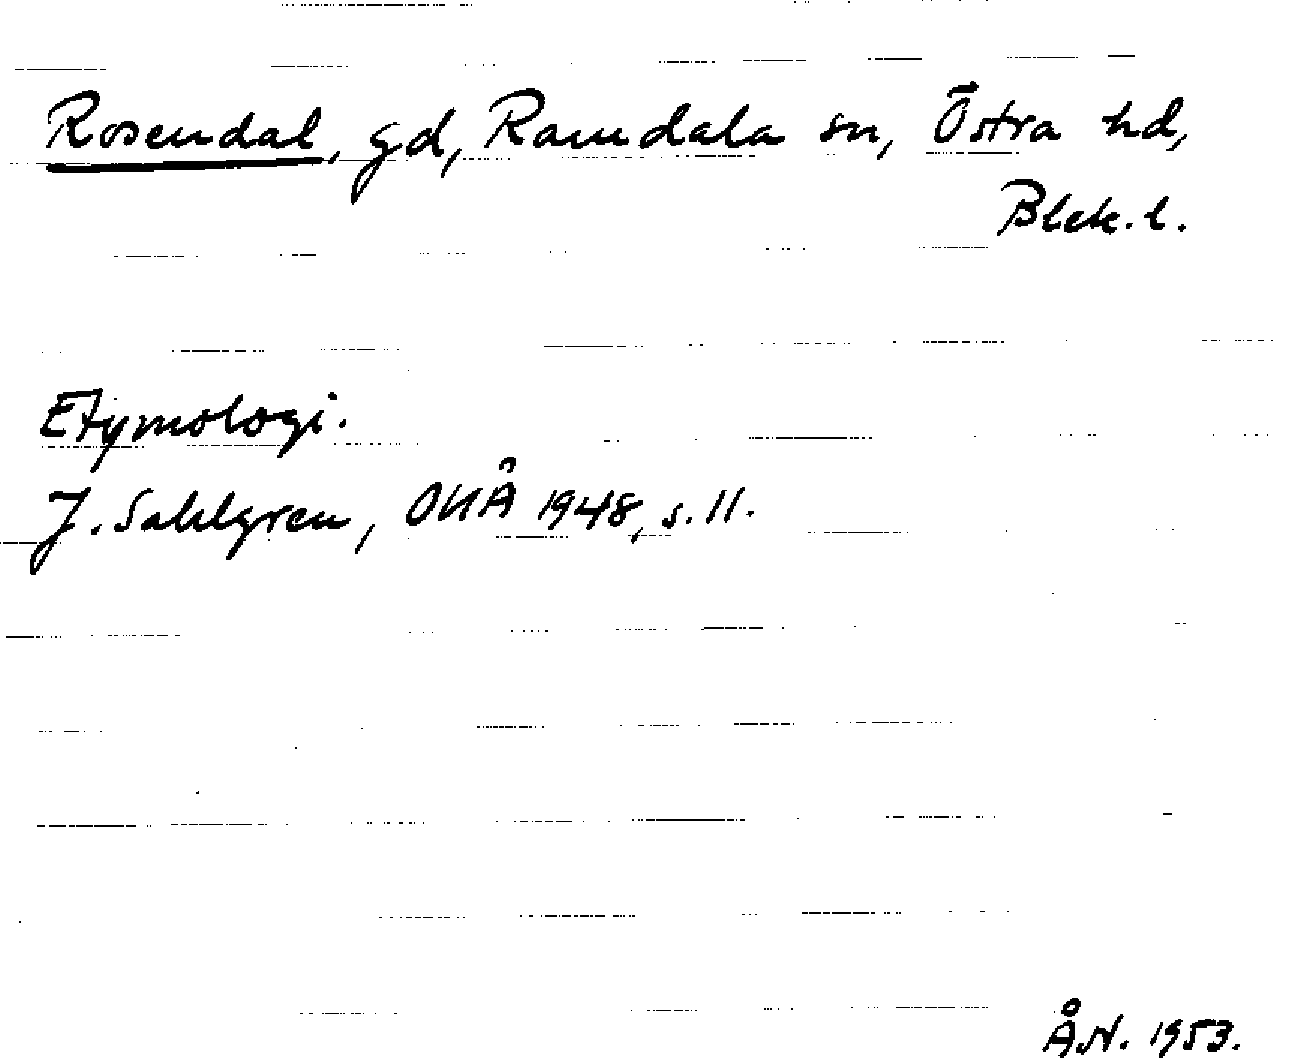 Rosendal, gd, Ramdala sn, Östra hd,
Blek. l.
Etymologi.
J. Sahlgren, ONÅ 1948, s. 11.
Å.N. 1953.